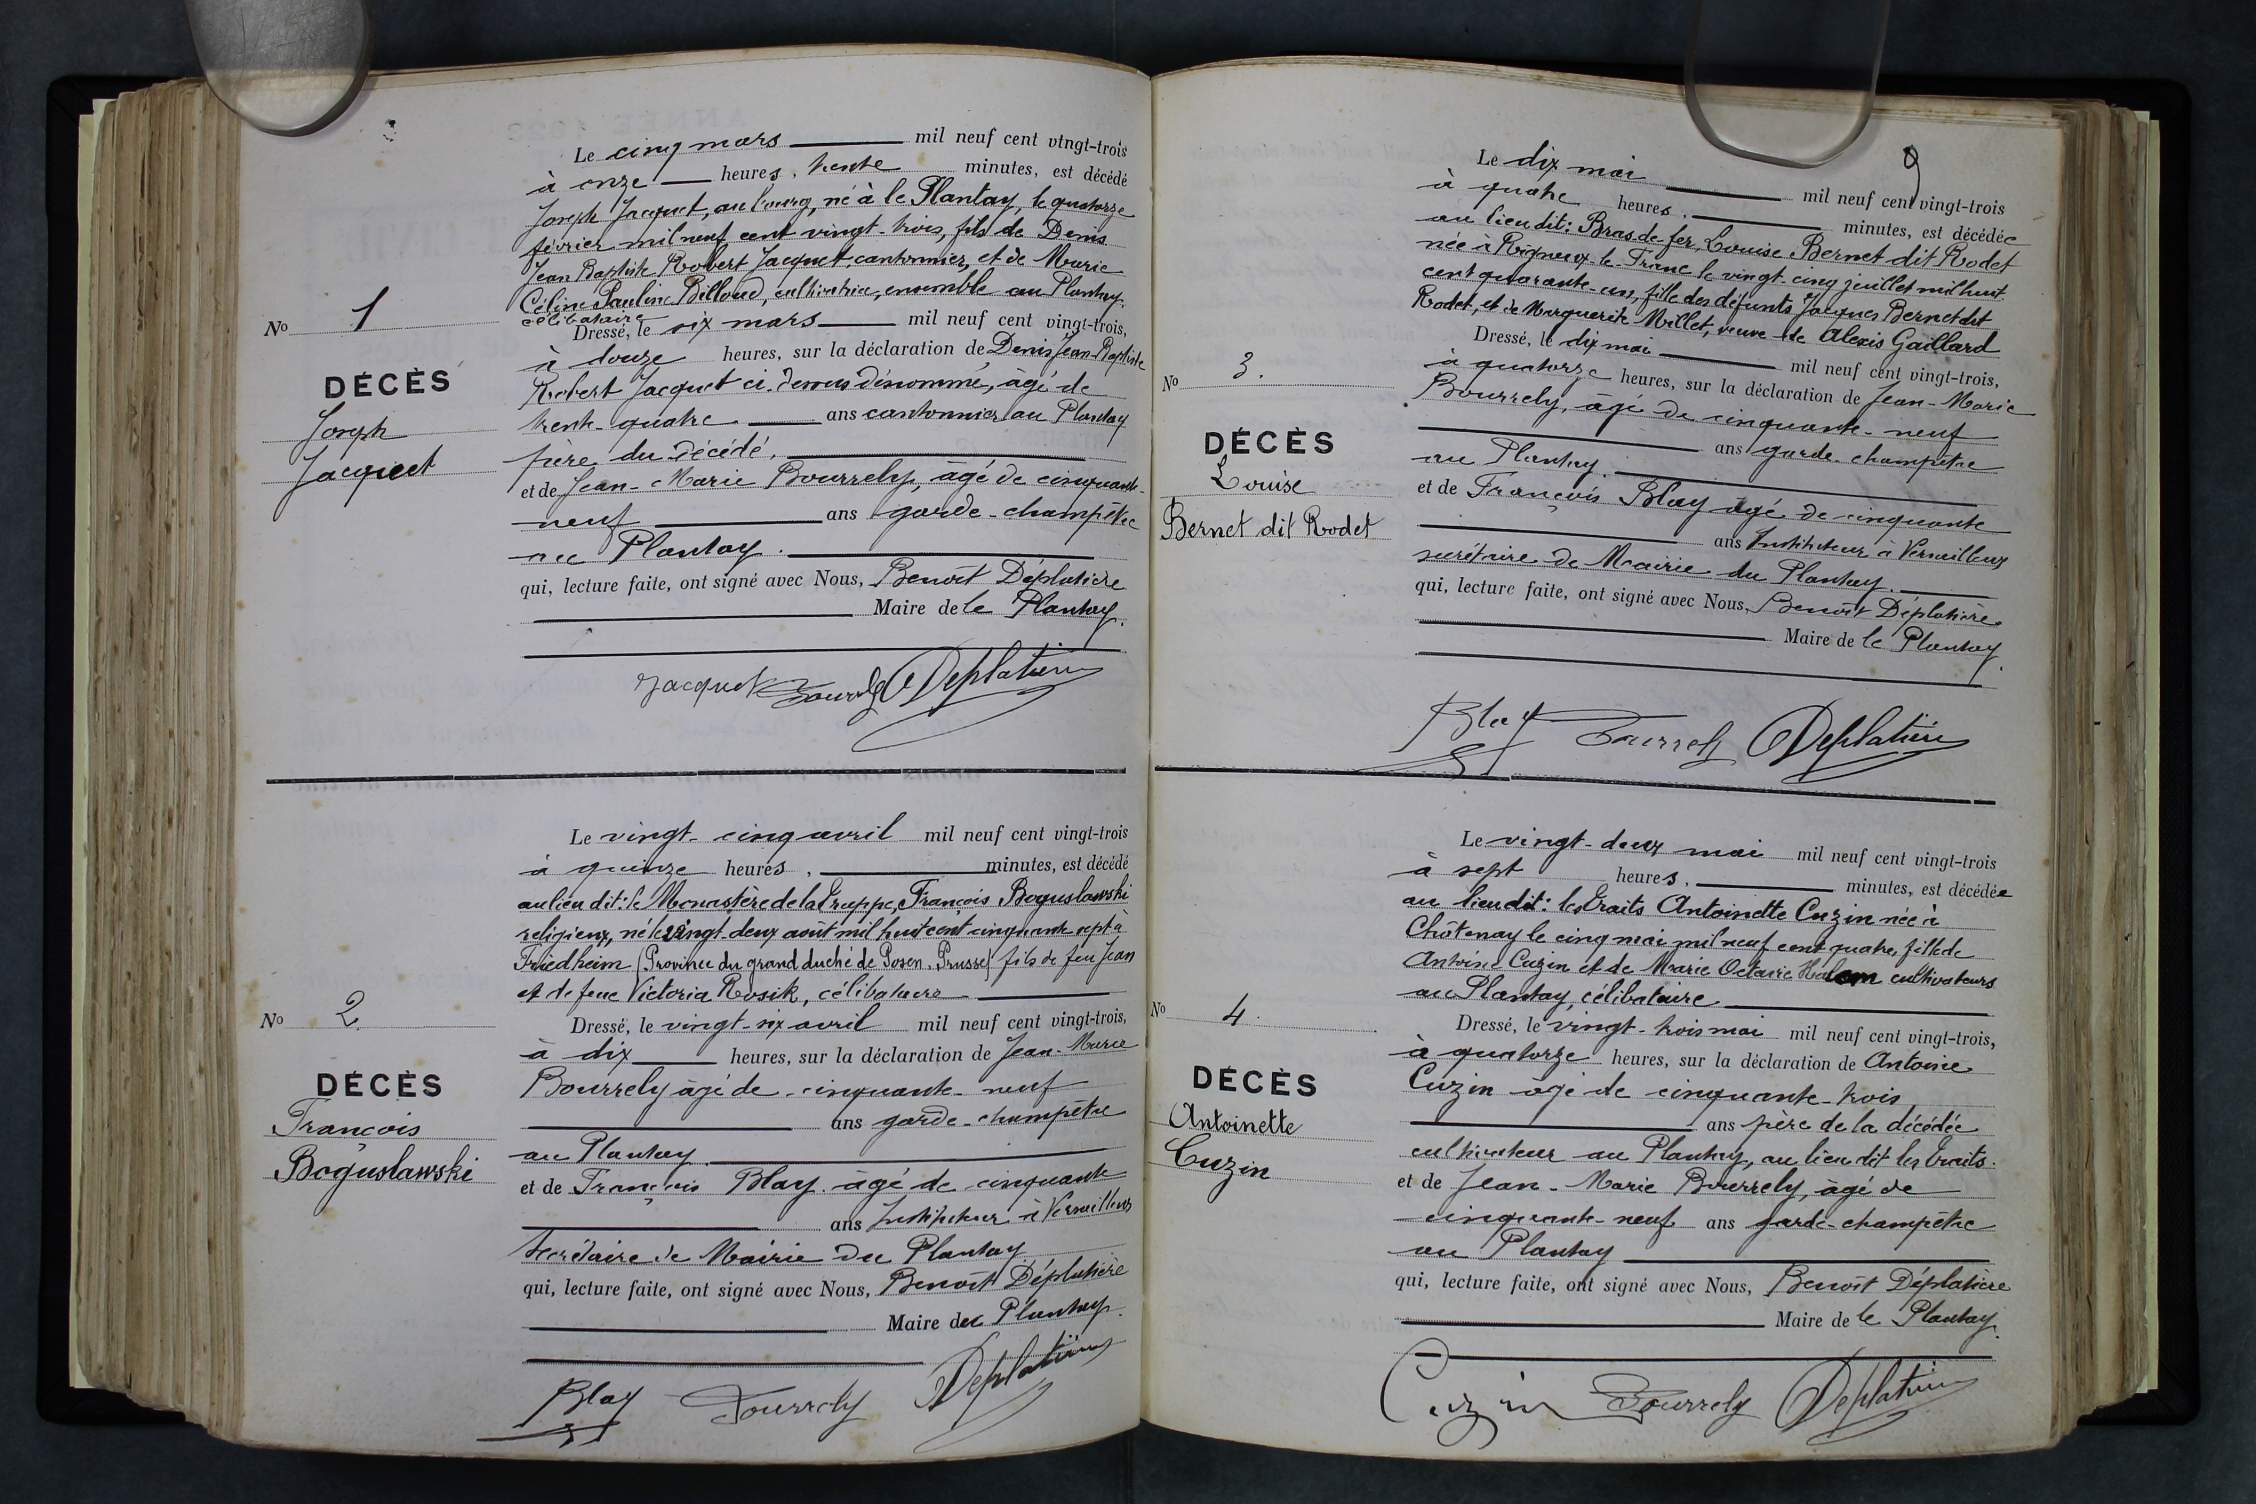 Le cinq mars mil neuf cent vingt-trois
à onze heures, trente minutes, est décédé
Joseph Jacquet, au bourg, né à le Plantay, le quatorze
février mil neuf cent vingt-trois, fils de Denis
Jean Baptiste Robert Jacquet, cantonnier, et de Marie
Céline Pauline Billoud, cultivatrice, ensemble au Plantay.
célibataire
No 1
Dressé, le six mars mil neuf cent vingt-trois,
à douze heures, sur la déclaration de Denis Jean-Baptiste
DÉCÈS
Robert Jacquet ci-dessus dénommé, âgé de
Joseph
trente-quatre ans cantonnier au Plantay
Jacquet
père du décédé.
et de Jean-Marie Bourrely, âgé de cinquante-
neuf ans garde-champêtre
au Plantay.
qui, lecture faite, ont signé avec Nous, Benoît Déplatière
Maire de le Plantay.
Jacquet Bourrely Déplatière
Le vingt-cinq avril mil neuf cent vingt-trois
à quinze heures, minutes, est décédé
au lieu dit: le Monastère de la Trappe, François Boguslawski
religieux, né le vingt-deux août mil huit cent cinquante sept à
Friedheim (Province du grand duché de Posen. Prusse) fils de feu Jean
et de feue Victoria Rosik, célibataire
No 2.
Dressé, le vingt-six avril mil neuf cent vingt-trois,
à dix heures, sur la déclaration de Jean-Marie
DÉCÈS
Bourrely âgé de cinquante-neuf
François
ans garde-champêtre
Boguslawski
au Plantay.
et de François Blay âgé de cinquante
ans Instituteur à Versailleux
Secrétaire de Mairie du Plantay
qui, lecture faite, ont signé avec Nous, Benoît Déplatière
Maire du Plantay.
Blay Bourrely Déplatière
9
Le dix mai mil neuf cent vingt-trois
à quatre heures, minutes, est décédée
au lieu dit: Bras de fer, Louise Bernet dit Rodet
née à Rigneux-le-Franc le vingt-cinq juillet mil huit
cent quarante-un, fille des défunts Jacques Bernet dit
Rodet, et de Marguerite Millet, veuve de Alexis Gaillard
No 3.
Dressé, le dix mai mil neuf cent vingt-trois,
à quatorze heures, sur la déclaration de Jean-Marie
DÉCÈS
Bourrely, âgé de cinquante-neuf
Louise
ans garde-champêtre
Bernet dit Rodet
au Plantay.
et de François Blay âgé de cinquante
ans Instituteur à Versailleux
secrétaire de Mairie du Plantay.
qui, lecture faite, ont signé avec Nous, Benoît Déplatière
Maire de le Plantay.
Blay Bourrely Déplatière
Le vingt-deux mai mil neuf cent vingt-trois
à sept heures, minutes, est décédée
au lieu dit: les Traits Antoinette Cuzin née à
Châtenay le cinq mai mil neuf cent quatre, fille de
Antoine Cuzin et de Marie Octavie cultivateurs
au Plantay, célibataire
No 4.
Dressé, le vingt-trois mai mil neuf cent vingt-trois,
à quatorze heures, sur la déclaration de Antoine
DÉCÈS
Cuzin âgé de cinquante-trois
Antoinette
ans père de la décédée
Cuzin
cultivateur au Plantay, au lieu dit les Traits.
et de Jean-Marie Bourrely, âgé de
cinquante-neuf ans garde-champêtre
au Plantay
qui, lecture faite, ont signé avec Nous, Benoît Déplatière
Maire de le Plantay.
Cuzin Bourrely Déplatière